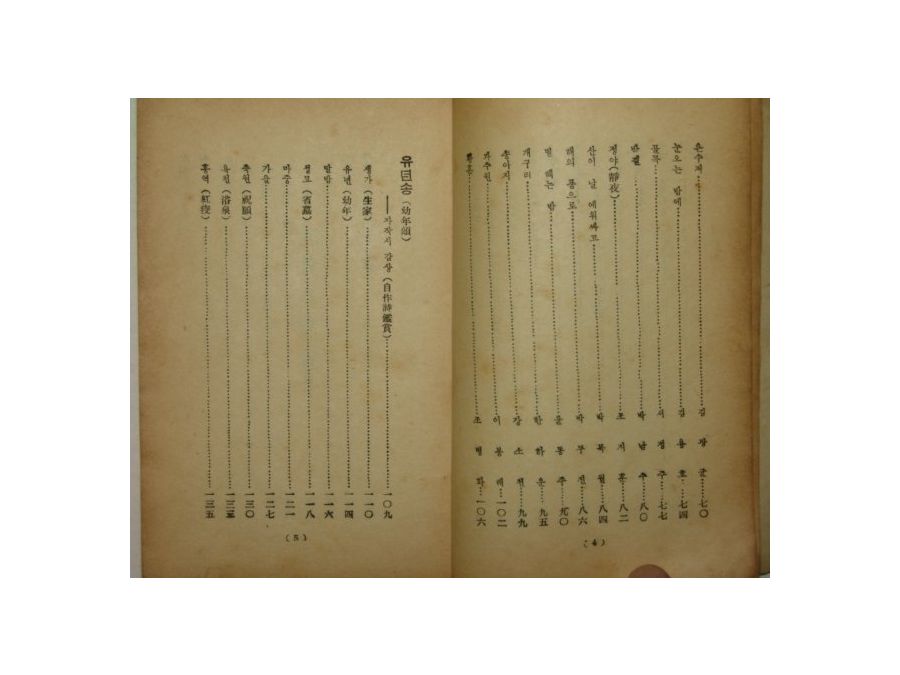 은수저……김광균……七〇
눈오는 밤에……김용호……七四
골목……서정주……七七
밤길……박남수……八〇
정야(靜夜)……조지훈……八二
산이 날 에워싸고……박목월……八四
해의 품으로……박두진……八六
별 헤는 밤……윤동주……九〇
개구리……한하운……九五
송아지……강소천……九九
과수원……이봉래……一〇二
황혼……조병화……一〇六
(4)
유년송(幼年頌)
──자작시 감상(自作詩鑑賞)……一〇九
생가(生家)……一一〇
유년(幼年)……一一四
알밤……一一六
성묘(省墓)……一一八
마중……一二一
가을……一二七
축원(祝願)……一三〇
욕천(浴泉)……一三三
홍역(紅疫)……一三五
(5)